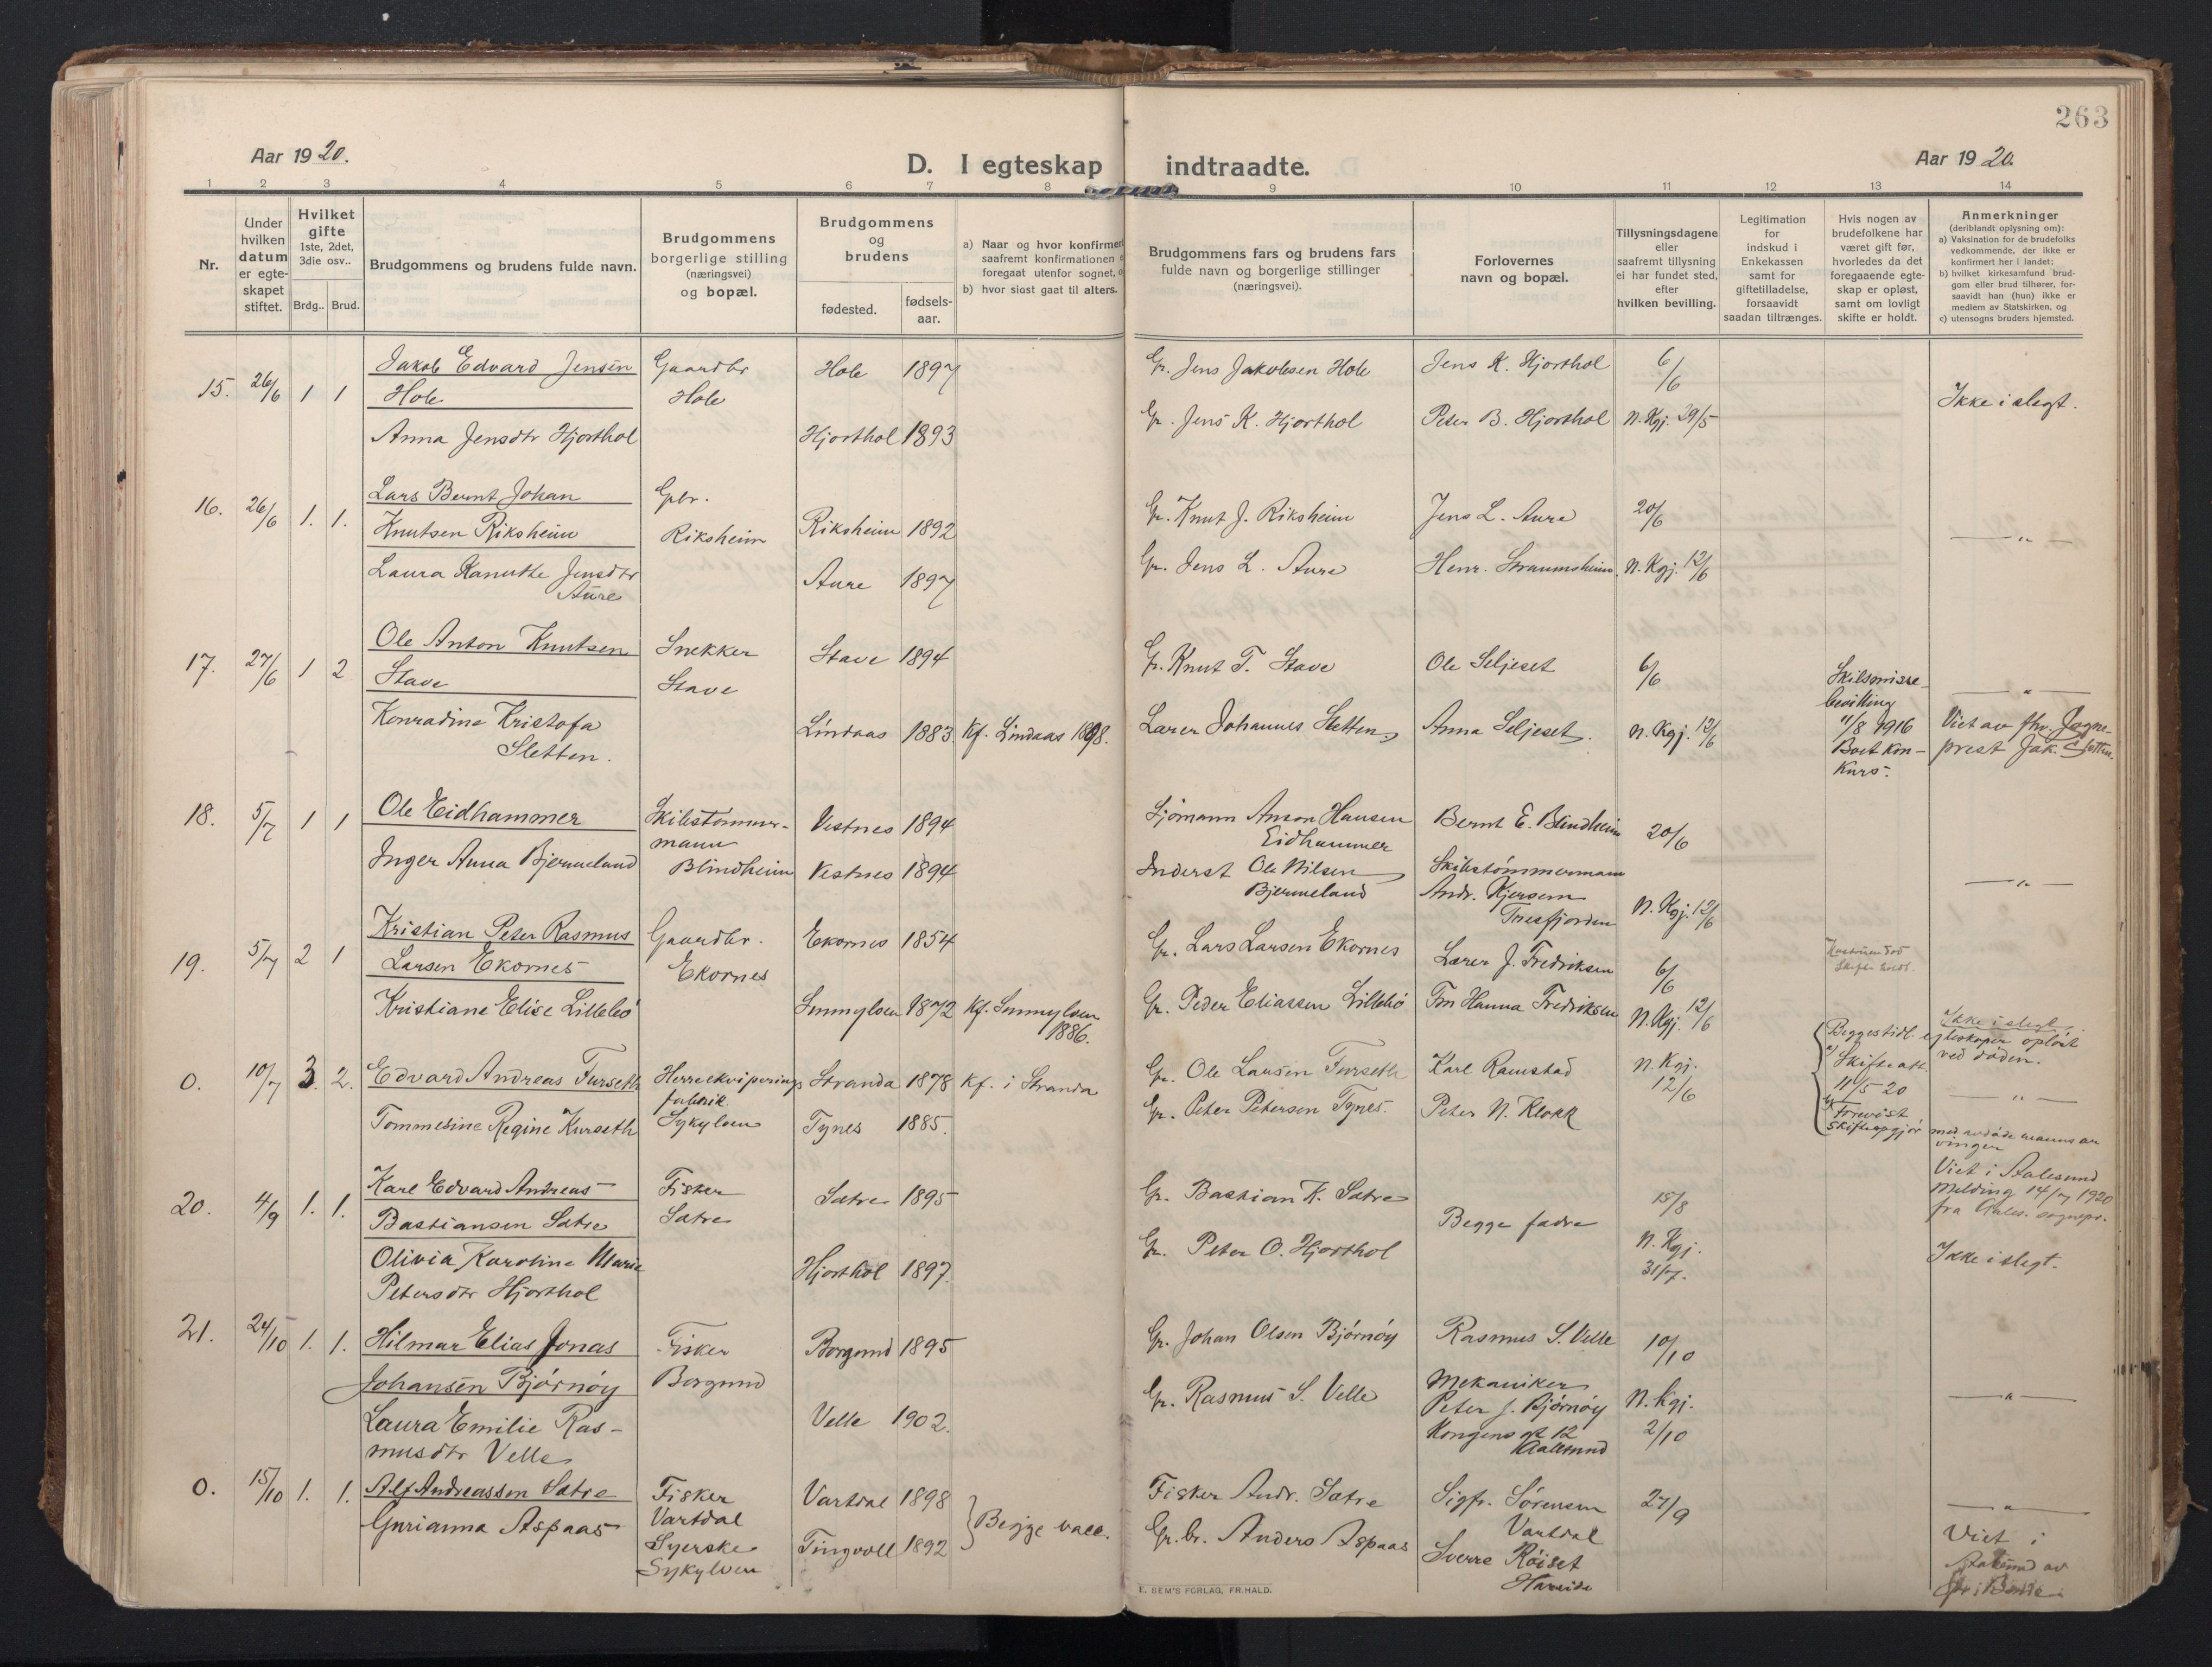 263
Aar 1920.
D. I egteskap indtraadte.
Aar 1920.
1 2 3 4 5 6 7 8 9 10 11 12 13 14
Nr.
Under hvilken datum er egte-skapet stiftet.
Hvilket gifte
1ste, 2det, 3die osv..
Brdg.. Brud.
Brudgommens og brudens fulde navn.
Brudgommens
borgerlige stilling
(næringsvei)
og bopæl.
Brudgommens
og
brudens
fødested.
fødsels-
aar.
a) Naar og hvor konfirmer
saafremt konfirmationen
foregaat utenfor sognet,
b) hvor sidst gaat til alters.
Brudgommens fars og brudens fars
fulde navn og borgerlige stillinger
(næringsvei).
Forlovernes
navn og bopæl.
Tillysningsdagene
eller
saafremt tillysning
ei har fundet sted,
efter
hvilken bevilling.
Legitimation
for
indskud i
Enkekassen
samt for
giftetilladelse,
forsaavidt
saadan tiltrænges.
Hvis nogen av
brudefolkene har
været gift før,
hvorledes da det
foregaaende egte-
skap er opløst,
samt om lovligt
skifte er holdt.
Anmerkninger
(deriblandt oplysning om):
a) Vaksination for de brudefolks
vedkommende, der ikke er
konfirmert her i landet:
b) hvilket kirkesamfund brud-
gom eller brud tilhører, for-
saavidt han (hun) ikke er
medlem av Statskirken, og
c) utensogns bruders hjemsted.
15. 26/6 1 1 Jakob Edvard Jensen Gaardbr Hole 1897 Gr. Jens Jakobsen Hole Jens K. Hjorthol 6/6
Hole Hole Ikke i slegt.
Anna Jensdtr Hjorthol Hjorthol 1893 Gr. Jens K. Hjorthol Peter B. Hjorthol N. Kgj. 29/5
16. 26/6 1. 1. Lars Bernt Johan Gbr.
Knutsen Riksheim Riksheim Riksheim 1892 Gr. Knut J. Riksheim Jens L. Aure 20/6 — " —
Laura Kanutte Jensdtr Aure 1897 Gr. Jens L. Aure Henr. Straumsheim. N. Kgj. 12/6
Aure
17. 27/6 1 2 Ole Anton Knutsen Snekker Stave 1894 Gr. Knut T. Stave Ole Seljeset 6/6 Skilsmisse-
Stave Stave bevilling — " —
Konradine Kristofa Lindaas 1883. Kf. Lindaas 1898. Lærer Johannes Sletten Anna Seljeset. N. Kgj. 12/6 11/8 1916 Viet av fhv. Sogne-
Sletten. Boet kon- prest Jak. Sletten.
kurs.
18. 5/7 1 1 Ole Eidhammer Skibstømmer- Vestnes 1894 Sjømann Anton Hansen Bernt E. Blindheim 20/6
mann Eidhammer
Inger Anna Bjermeland Blindheim Vestnes 1894 Inderst Ole Nilsen Skibstømmermann — " —
Bjermeland Andr. Kjersem N. Kgj. 12/6
Tresfjorden
19. 5/7 2 1 Kristian Peter Rasmus Gaardbr. Ekornes 1854 Gr. Lars Larsen Ekornes Lærer J. Fredriksen 6/6 Hustruen død
Larsen Ekornes Ekornes Skifte holdt.
Kristiane Elise Lillebø Sunnylven 1872 Kf. Sunnylven Gr. Peder Eliassen Lillebø Fru Hanna Fredriksen N. Kgj. 12/6 Ikke i slegt
1886.
0. 10/7 3. 2. Edvard Andreas Furseth Herreekviperings Stranda 1878 Kf. i Stranda Gr. Ole Larsen Furseth Karl Ramstad N. Kgj. Begges tidl. egteskaper opløst
fabrik 12/6 a) Skifteatt. ved døden.
11/5 20 — " —
Tommesine Regine Kurseth Sykylven Tynes 1885. Gr. Peter Petersen Tynes. Peter N. Klokk b) Forevist
skifteopgjør med avdøde manns ar
vinger
20. 4/9 1. 1. Karl Edvard Andreas Fisker Satre 1895 Gr. Bastian K. Satre 15/8 Viet i Aalesund
Bastiansen Satre Satre Begge fædre Melding 14/7 1920
fra Aales. sognepr.
Olivia Karoline Marie Hjorthol 1897. Gr. Peter O. Hjorthol N. Kgj. Ikke i slegt.
Petersdtr Hjorthol 31/7.
21. 24/10 1. 1. Hilmar Elias Jonas Fisker Borgund 1895 Gr. Johan Olsen Bjørnøy Rasmus S. Velle 10/10
Johansen Bjørnøy Borgund Mekaniker
Laura Emilie Ras- Velle 1902. Gr. Rasmus S. Velle Peter J. Bjørnøy N. Kgj. — " —
musdtr Velle Kongens gt 12 2/10
Aalesund
0. 15/10 1. 1. Alf Andreassen Satre Fisker Vartdal 1898 Begge vacc. Fisker Andr. Satre Sigfr. Sørensen 27/9 — " —
Vartdal Vartdal
Gurianna Aspaas Syerske Tingvoll 1892 Gr. br. Anders Aspaas Sverre Røiset Viet i
Sykylven Hareide Aalesund av
E. SEM'S FORLAG, FR.HALD.